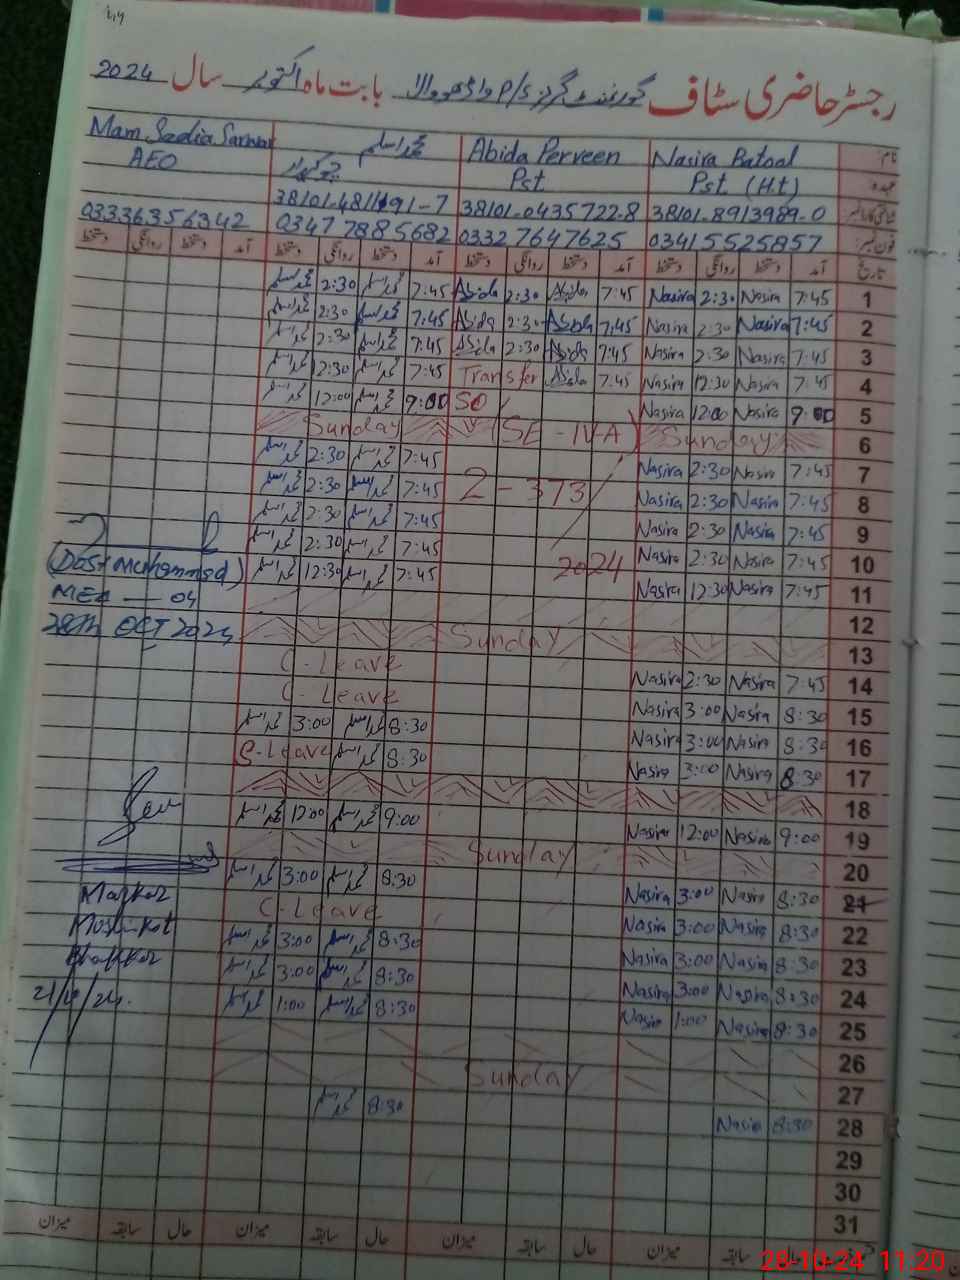 رجسٹر حاضری سٹاف گورنمنٹ گرلز P/S بابت ماہ اکتوبر سال 2024
نام: Nasira Batool Abida Perveen محمد اسلم Mam Sadia Sarwar
عہدہ Pst (H.t) Pst چوکیدار AEO
38101-8913989-0 38101-0435722-8 38101-4811191-7
فون نمبر: 03415525857 03327647625 03477885682 03336356342
تاریخ آمد دستخط روانگی دستخط آمد دستخط روانگی دستخط آمد دستخط روانگی دستخط آمد دستخط روانگی دستخط
1 7:45 Nasira 2:30 Nasira 7:45 Abida 2:30 Abida 7:45 محمد اسلم 2:30 محمد اسلم
2 7:45 Nasira 2:30 Nasira 7:45 Abida 2:30 Abida 7:45 محمد اسلم 2:30 محمد اسلم
3 7:45 Nasira 2:30 Nasira 7:45 Abida 2:30 Abida 7:45 محمد اسلم 2:30 محمد اسلم
4 7:45 Nasira 12:30 Nasira 7:45 Abida Transfer 7:45 محمد اسلم 12:30 محمد اسلم
5 9:00 Nasira 12:00 Nasira SO 9:00 محمد اسلم 12:00 محمد اسلم
6 Sunday (SE-IV-A) Sunday
7 7:45 Nasira 2:30 Nasira 7:45 محمد اسلم 2:30 محمد اسلم
8 7:45 Nasira 2:30 Nasira 2-373 7:45 محمد اسلم 2:30 محمد اسلم
9 7:45 Nasira 2:30 Nasira 7:45 محمد اسلم 2:30 محمد اسلم
10 7:45 Nasira 2:30 Nasira 2024 7:45 محمد اسلم 2:30 محمد اسلم
11 7:45 Nasira 12:30 Nasira 7:45 محمد اسلم 12:30 محمد اسلم
(Dost Muhammad)
MEA — 04
28th OCT 2024
12
13 Sunday
14 7:45 Nasira 2:30 Nasira C-Leave
15 8:30 Nasira 3:00 Nasira C-Leave
16 8:30 Nasira 3:00 Nasira 8:30 محمد اسلم 3:00 محمد اسلم
17 8:30 Nasira 3:00 Nasira 8:30 محمد اسلم C-Leave
18
19 9:00 Nasira 12:00 Nasira 9:00 محمد اسلم 12:00 محمد اسلم
20 Sunday
21 8:30 Nasira 3:00 Nasira 8:30 محمد اسلم 3:00 محمد اسلم
22 8:30 Nasira 3:00 Nasira C-Leave
23 8:30 Nasira 3:00 Nasira 8:30 محمد اسلم 3:00 محمد اسلم
24 8:30 Nasira 3:00 Nasira 8:30 محمد اسلم 3:00 محمد اسلم
25 8:30 Nasira 1:00 Nasira 8:30 محمد اسلم 1:00 محمد اسلم
Markaz
Bhakkar
26
27 Sunday
28 8:30 Nasira 8:30 محمد اسلم
29
30
31
حال سابقہ میزان حال سابقہ میزان حال سابقہ میزان حال سابقہ میزان
28-10-24 11:20